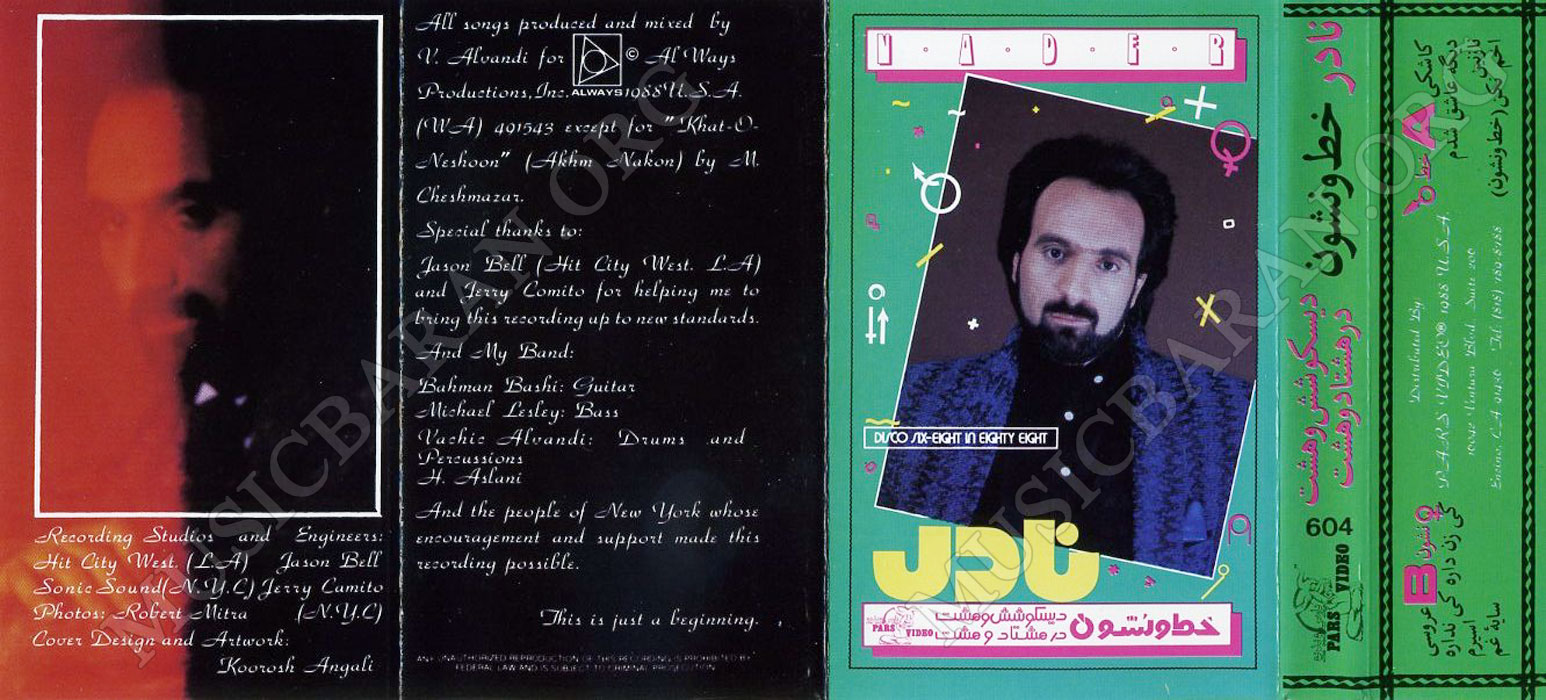 Recording Studios and Engineers:
Hit City West. (L.A) Jason Bell
Sonic Sound (N.Y.C) Jerry Camito
Photos: Robert Mitra (N.Y.C)
Cover Design and Artwork:
Koorosh Angali
All songs produced and mixed by
V. Alvandi for © Al Ways
Productions, Inc. ALWAYS 1988 U.S.A.
(WA) 491543 except for "Khat-O-
Neshoon" (Akhm Nakon) by M.
Cheshmazar.
Special thanks to:
Jason Bell (Hit City West. L.A)
and Jerry Comito for helping me to
bring this recording up to new standards.
And My Band:
Bahman Bashi: Guitar
Michael Lesley: Bass
Vachic Alvandi: Drums and
Percussions
H. Aslani
And the people of New York whose
encouragement and support made this
recording possible.
This is just a beginning.
ANY UNAUTHORIZED REPRODUCTION OF THIS RECORDING IS PROHIBITED BY
FEDERAL LAW AND IS SUBJECT TO CRIMINAL PROSECUTION
N·A·D·E·R
DISCO SIX-EIGHT IN EIGHTY EIGHT
نادر
خط و نشون
دیسکو شش و هشت
در هشتاد و هشت
PARS VIDEO
نادر خط و نشون
دیسکو شش و هشت
در هشتاد و هشت
604
PARS VIDEO
A خط
کاشکی
دیگه عاشق شدم
نازنین
اخم نکن (خط و نشون)
Distributed By
PARS VIDEO® 1988 U.S.A.
16042 Ventura Blvd. Suite 206
B و نشون
عروسی
کی زن داره کی نداره
اسیرم
سایهٔ غم
MUSICBARAN.ORG
MUSICBARAN.ORG